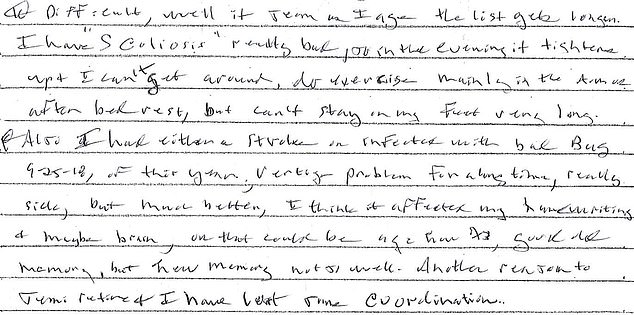 Difficult, well it seem as I age the list gets longer.
I have "Scoliosis" really bad, so in the evening it tightens
up & I can't get around, do exercise mainly in the
after bed rest, but can't stay on my feet very long.
Also I had either a stroke or infected with bad Bug
9-25-18, of this year, vertigo problem for a long time, really
sick, but much better, I think it affected my handwriting
& maybe brain, or that could be age now, good old
memory, but new memory not so well. Another reason to
semi retired I have lost some coordination..